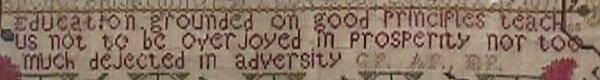 Education grounded on good Principles teach
us not to be overjoyed in Prosperity nor too
much dejected in adversity